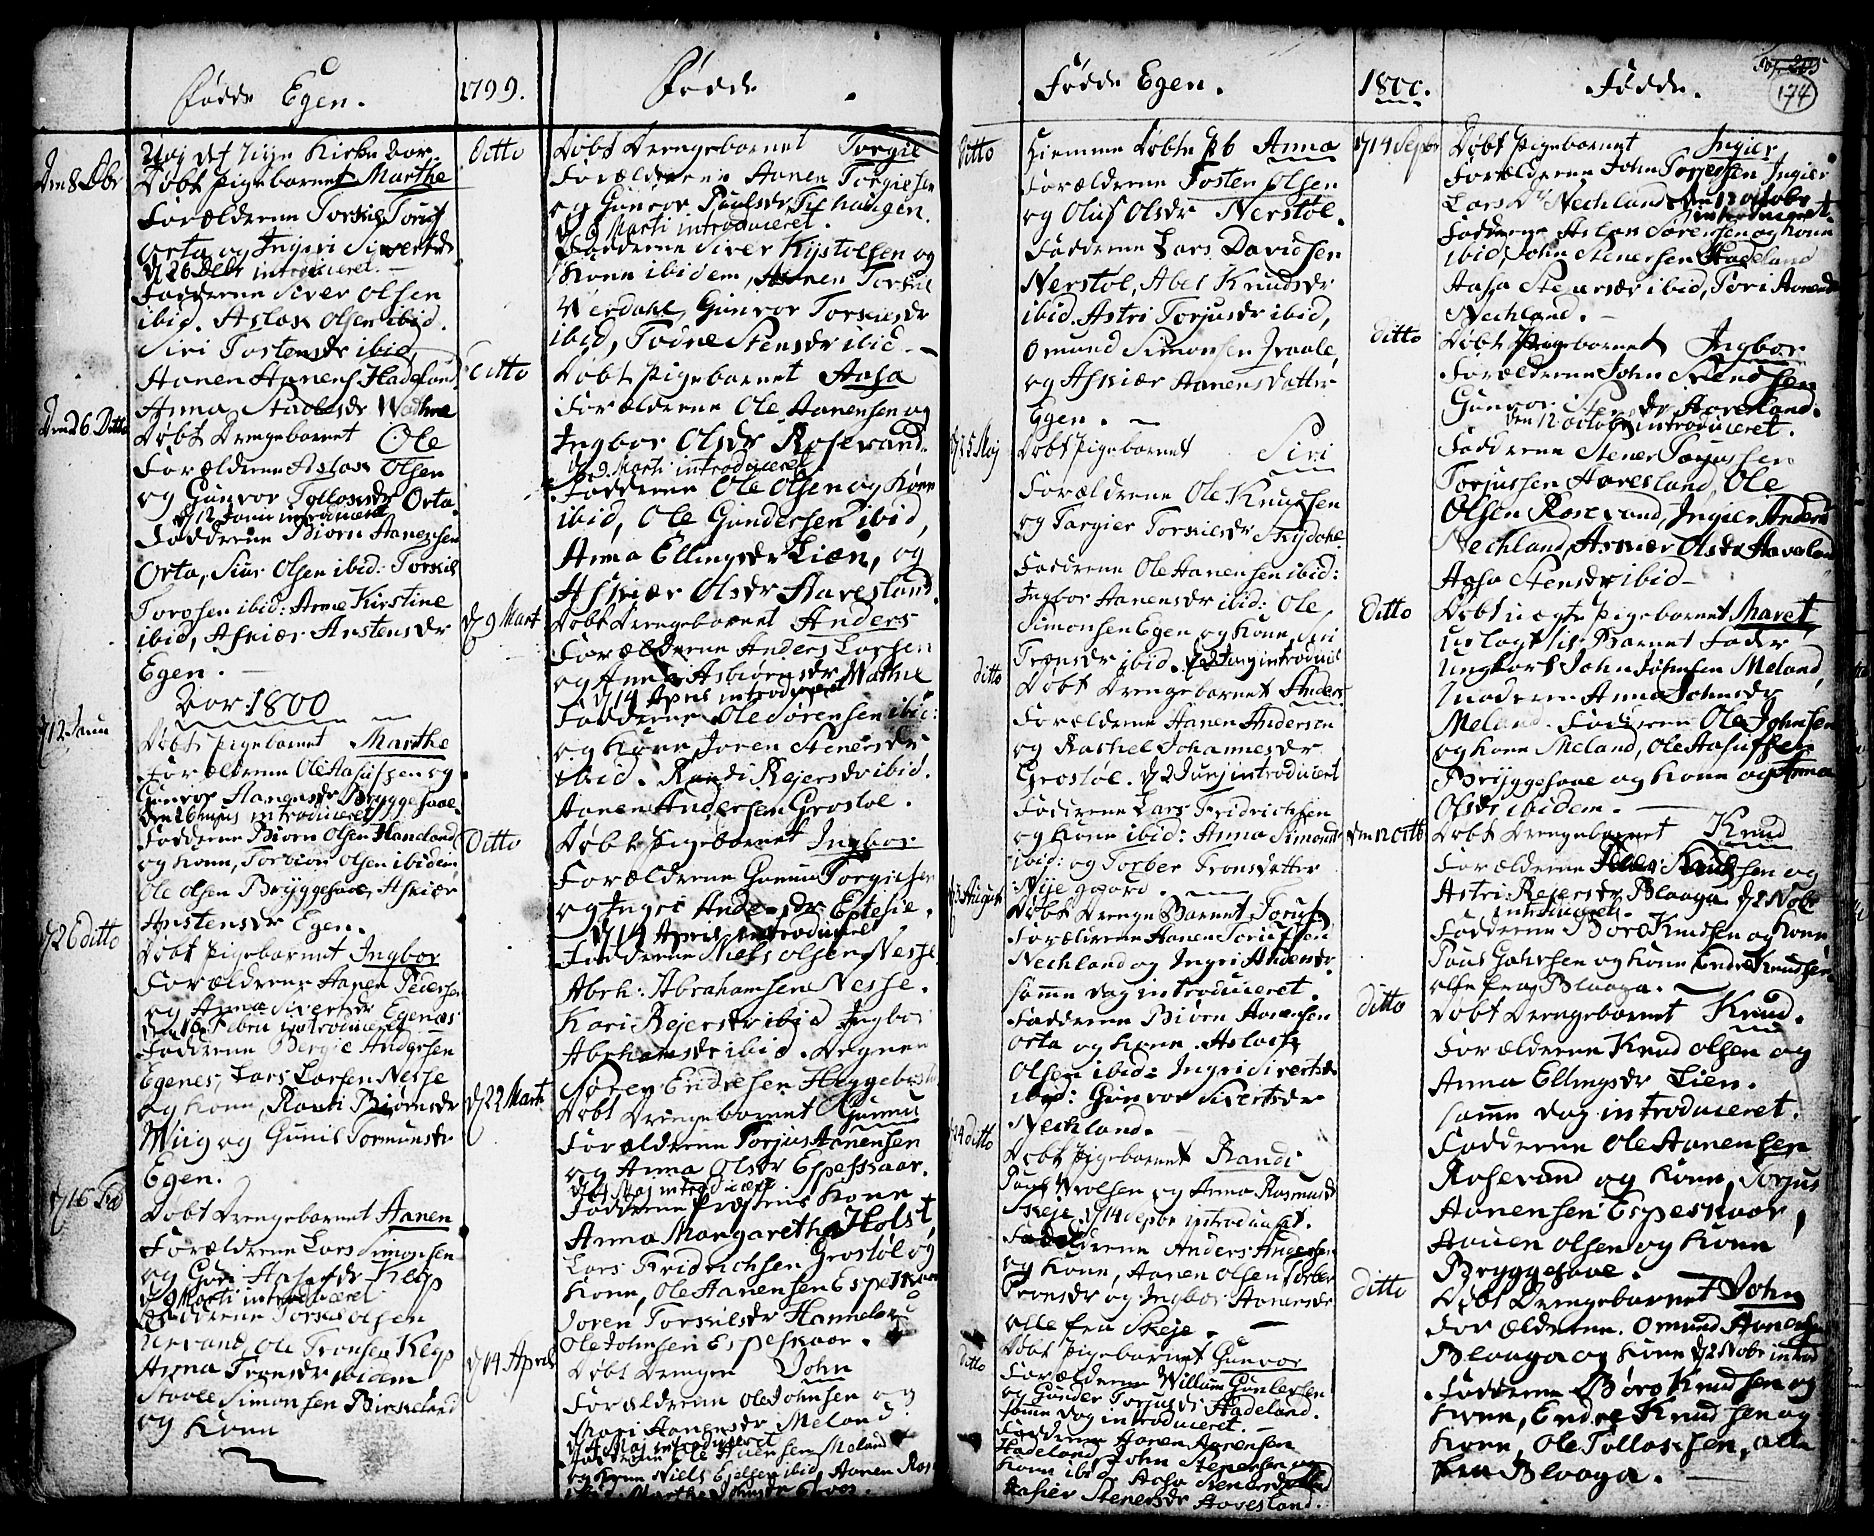 Fødde Egen.
1799.
Fødde
Den 8 Dbr
Døbt Pigebarnet Marthe
Forældrene Torkil Torus
Orta og Ingeri Sivertsdr
d 26 Debr introduceret.
Fadderne Siver Olsen
ibid. Aslak Olsen ibid.
Siri Tostensdr ibid
Aanen Aanens Hadeland
Anna Staalesdr Wathne
Den 26 Ditto
Døbt Drengebarnet Ole
Forældrene Aslak Olsen
og Gunvor Tollaksdr Orta.
d 12 Janu introduceret
Fadderne Biørn Aanensen
Orta, Siur Olsen ibid: Torkil
ibid: Anne Kirstine
ibid, Askier Anstensdr
Egen.
Aar 1800
d 12 Janu
Døbt Pigebarnet Marthe
Forældrene Ole Aasulssen og
Gunvor Aanensdr Bryggesaae.
introduceret
Fadderne Biørn Olsen Haneland
og Kone, Torbiør Olsen ibidem
Ole Olsen Bryggesaae, Askier
Anstensdr Egen.
d 26 ditto
Døbt Pigebarnet Ingbor
Forældrene Aanen Pedersen
og Anna Sivertsdr Egenæs
d 16 Febru introduceret
Fadderne Bergie Andersen
Egenes, Lars Larsen Nesse
og Kone, Randi Biørnsdr
Wiig og Gunil Tormunsdr
Egen.
d 16 Feb
Døbt Drengebarnet Aanen
Forældrene Lars Simonsen
og Guri Aasesdr Klep
d 9 Marti introduceret
Fadderne Torkil Olsen
Urvand, Ole Tronsen Klep
Anna Tronsdr ibidem
Staale Simonsen Birkeland
og Kone
Ditto
Døbt Drengebarnet Torgie
Forældrene Aanen Torgiesen
og Gunvor Paulsdr Tishaugen.
d 9 Marti introduceret.
Fadderne Siver Kistolsen og
Kone ibidem, Aanen Torkil
Werdahl, Gunvor Torkilsdr
ibid, Todne Stensdr ibid
Ditto
Døbt Pigebarnet Aasa
Forældrene Ole Aanensen og
Ingbor Olsdr Roservand
d 9 Marti introduceret
Fadderne Ole Olsen og Kone
ibid, Ole Gundersen ibid,
Anna Ellingsdr Lien, og
Askier Olsdr Haavesland.
d 9 Mart
Døbt Drengebarnet Anders
Forældrene Anders Larsen
og Anna Asbiørnsdr Wathne
d 14 April introduceret
Fadderne Ole Sørensen ibid:
og Kone Joren Stenersdr
ibid. Randi Rejersdr ibid.
Aanen Andersen Grostøl.
Ditto
Døbt Pigebarnet Ingbor
Forældrene Gunnu Torgiesen
og Ingri Andersdr Eptesie.
d 14 April introduceret
Fadderne Niels Olsen Nesse
Abrh: Abrahamsen Nesse.
Kari Rejersdr ibid Ingbor
Abrhamsdr ibid.
Søren Endresen Heggebost
d 22 Marti
Døbt Drengebarnet Gunnu
Forældrene Torjus Aanensen
og Anna Olsdr Espeskaar.
d 4 Maj introduceret
Fadderne Præstens Kone
Anna Margaretha Holst
Lars Fridrichsen Grostøl og
Kone, Ole Aanensen Espeskaar
Joren Torkilsdr Hanneland
Ole Johnsen Espeskaar.
d 14 April
Døbt Drengen John
Forældrene Ole Johnsen og
Mari Aanensdr Meland
d 4 Maj introduceret
Fadderne Ole Meland
og Kone Niels ibid, Aanen Ros
Fødde Egen.
1800.
Fødde.
174
Ditto
Hiemme Døbte Pb Anna
Forældrene Tosten Olsen
og Oluf Olsdr Nerstøl.
Fadderne Lars Davidsen
Nerstøl, Abel Knudsdr
ibid. Astri Torjusdr ibid,
Omund Simonsen Jraale,
og Askiær Aanensdatter
Egen.
d 25 Maj
Døbt Pigebarnet Siri
Forældrene Ole Knudsen
og Targier Torkilsdr Skjdahl
Fadderne Ole Aanensen ibid:
Ingbor Aanensdr ibid: Ole
Simonsen Egen og Kone, Siri
Tronsdr ibid. d 2 Junj introduce
ditto
Døbt Drengebarnet Anders
Forældrene Aanen Andersen
og Rachel Johannesdr
Grostøl. d 2 Junj introduceret
Fadderne Lars Fridrichsen
og Kone ibid: Anna Simonsdr
ibid: og Torber Tronsdatter
Nije gaard.
d 3 August
Døbt Drenge Barnet Torius
Forældrene Aanen Toriussen
Nechland og Ingri Andersdr
samme dag introduceret.
Fadderne Biørn Aanensen
Orta og Kone. Aslach
Olsen ibid: Ingri Sivertsdr
ibid: Gunvor Sivertsdr
Nechland.
24 ditto
Døbt Pigebarnet Randi
Paul Wrolsen og Anna Rasmusdr
Skeje. d 14 Sepbr introduceret.
Fadderne Anders Andersen
og Kone, Aanen Olsen Torber
Tronsdr og Ingbor Aanensdr
alle fra Skeje.
ditto
Døbt Pigebarnet Gunvor
Forældrene Willum Guntersen
og Gunder Torjusdr Hadeland.
samme dag introduceret.
Fadderne Aanen Aanensen
Hadeland, John Stenersen og
Kone ibid, Aasa Stenersdr
Aasier Stenersdr Haavesland.
d 14 Sepbr
Døbt Pigebarnet Ingier
Forældrene John Torjessen Ingier
Larsdr Nechland Den 12 Octobr
introduceret.
Fadderne Aslak Sørensen og Kone
ibid, John Stenersen Hadeland
Aasa Stenersdr ibid, Tori Aanensdr
Nechland.
ditto
Døbt Pigebarnet Ingbor
Forældrene John Svendsen
Gunvor Stensdr Haaveland.
Den 12 October introduceret.
Fadderne Stener Torjussen
Torjussen Haavesland, Ole
Olsen Roservand, Ingier Anders
Nechland, Askiær Olsdr Haaveland
Aasa Stensdr ibid
ditto
Døbt uægte Pigebarnet Maret
Udlagt til Barnet Fader
Ungkarl John Johnsen Meland,
Moderen Anna Johnsdr
Meland. Fadderne Ole Johnsen
og Kone Meland, Ole Aasulssen
Bryggesaae og Kone og Anna
Olsdr ibidem.
Den 12 Octb
Døbt Drengebarnet Knud
Forældrene Knudsen og
Astri Rejersdr Blaaga d 2 Nobr
introduceret.
Fadderne Børe Knudsen og Kone,
Paul Gahrsen og Kone Endre Knudsen
alle fra Blaaga.
ditto
Døbt Drengebarnet Knud.
Forældrene Knud Olsen og
Anna Ellingsdr Lien.
samme dag introduceret.
Fadderne Ole Aanensen
Roservand og Kone, Torjus
Aanensen Espeskaar,
Aanen Olsen og Kone
Bryggesaae.
ditto
Døbt Drengebarnet John
Forældrene. Omund Aanensen
Blaaga og Kone d 2 Nobr introd
Fadderne Børe Knudsen og
Kone, Endre Knudsen og
Kone, Ole Tollaksen, alle
fra Blaaga.